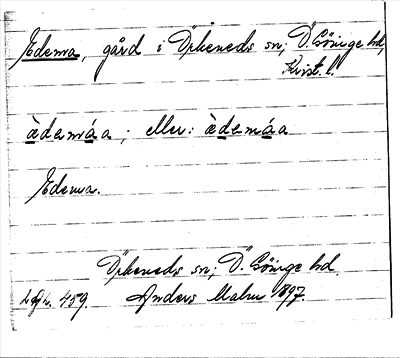 Edema, gård i Örkeneds sn; Ö. Göinge hd,
Krist. l.
àdamáa; eller: àdemáa
Edema.
Örkeneds sn; Ö. Göinge hd.
459. Anders Malm 1897.